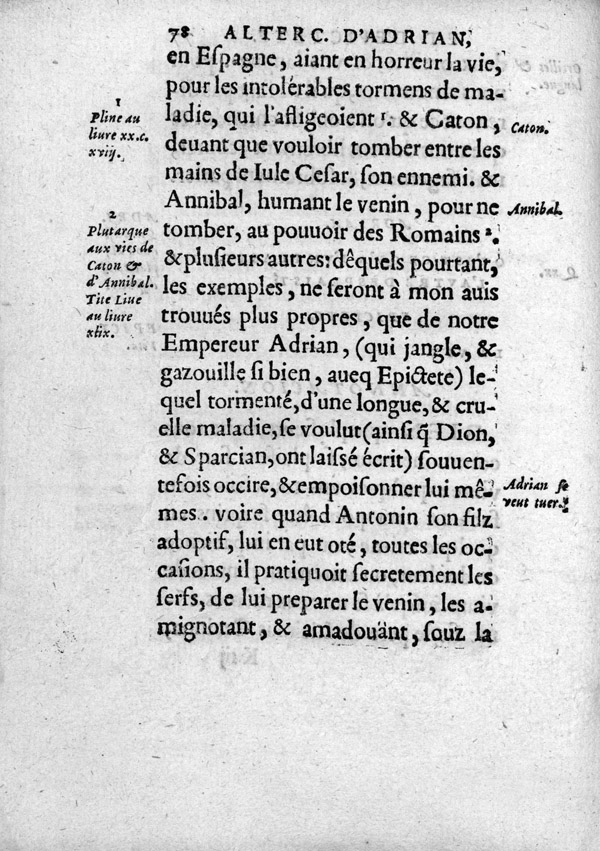 78 ALTERC. D'ADRIAN,
en Eſpagne, aiant en horreur la vie,
pour les intolérables tormens de ma-
ladie, qui l'afligeoient ¹. & Caton,
deuant que vouloir tomber entre les
mains de Iule Ceſar, ſon ennemi. &
Annibal, humant le venin, pour ne
tomber, au pouuoir des Romains ².
& pluſieurs autres: dêquels pourtant,
les exemples, ne ſeront à mon auis
trouués plus propres, que de notre
Empereur Adrian, (qui jangle, &
gazouille ſi bien, aueq Epictete) le-
quel tormenté, d'une longue, & cru-
elle maladie, ſe voulut (ainſi q̃ Dion,
& Sparcian, ont laiſſé écrit) ſouuen-
tefois occire, & empoiſonner lui mê-
mes. voire quand Antonin ſon filz
adoptif, lui en eut oté, toutes les oc-
caſions, il pratiquoit ſecretement les
ſerfs, de lui preparer le venin, les a-
mignotant, & amadouänt, ſouz la
1
Pline au
liure xx.c.
xviij.
2
Plutarque
aux vies de
Caton &
d'Annibal.
Tite Liue
au liure
xlix.
Caton.
Annibal.
Adrian ſe
veut tuer.